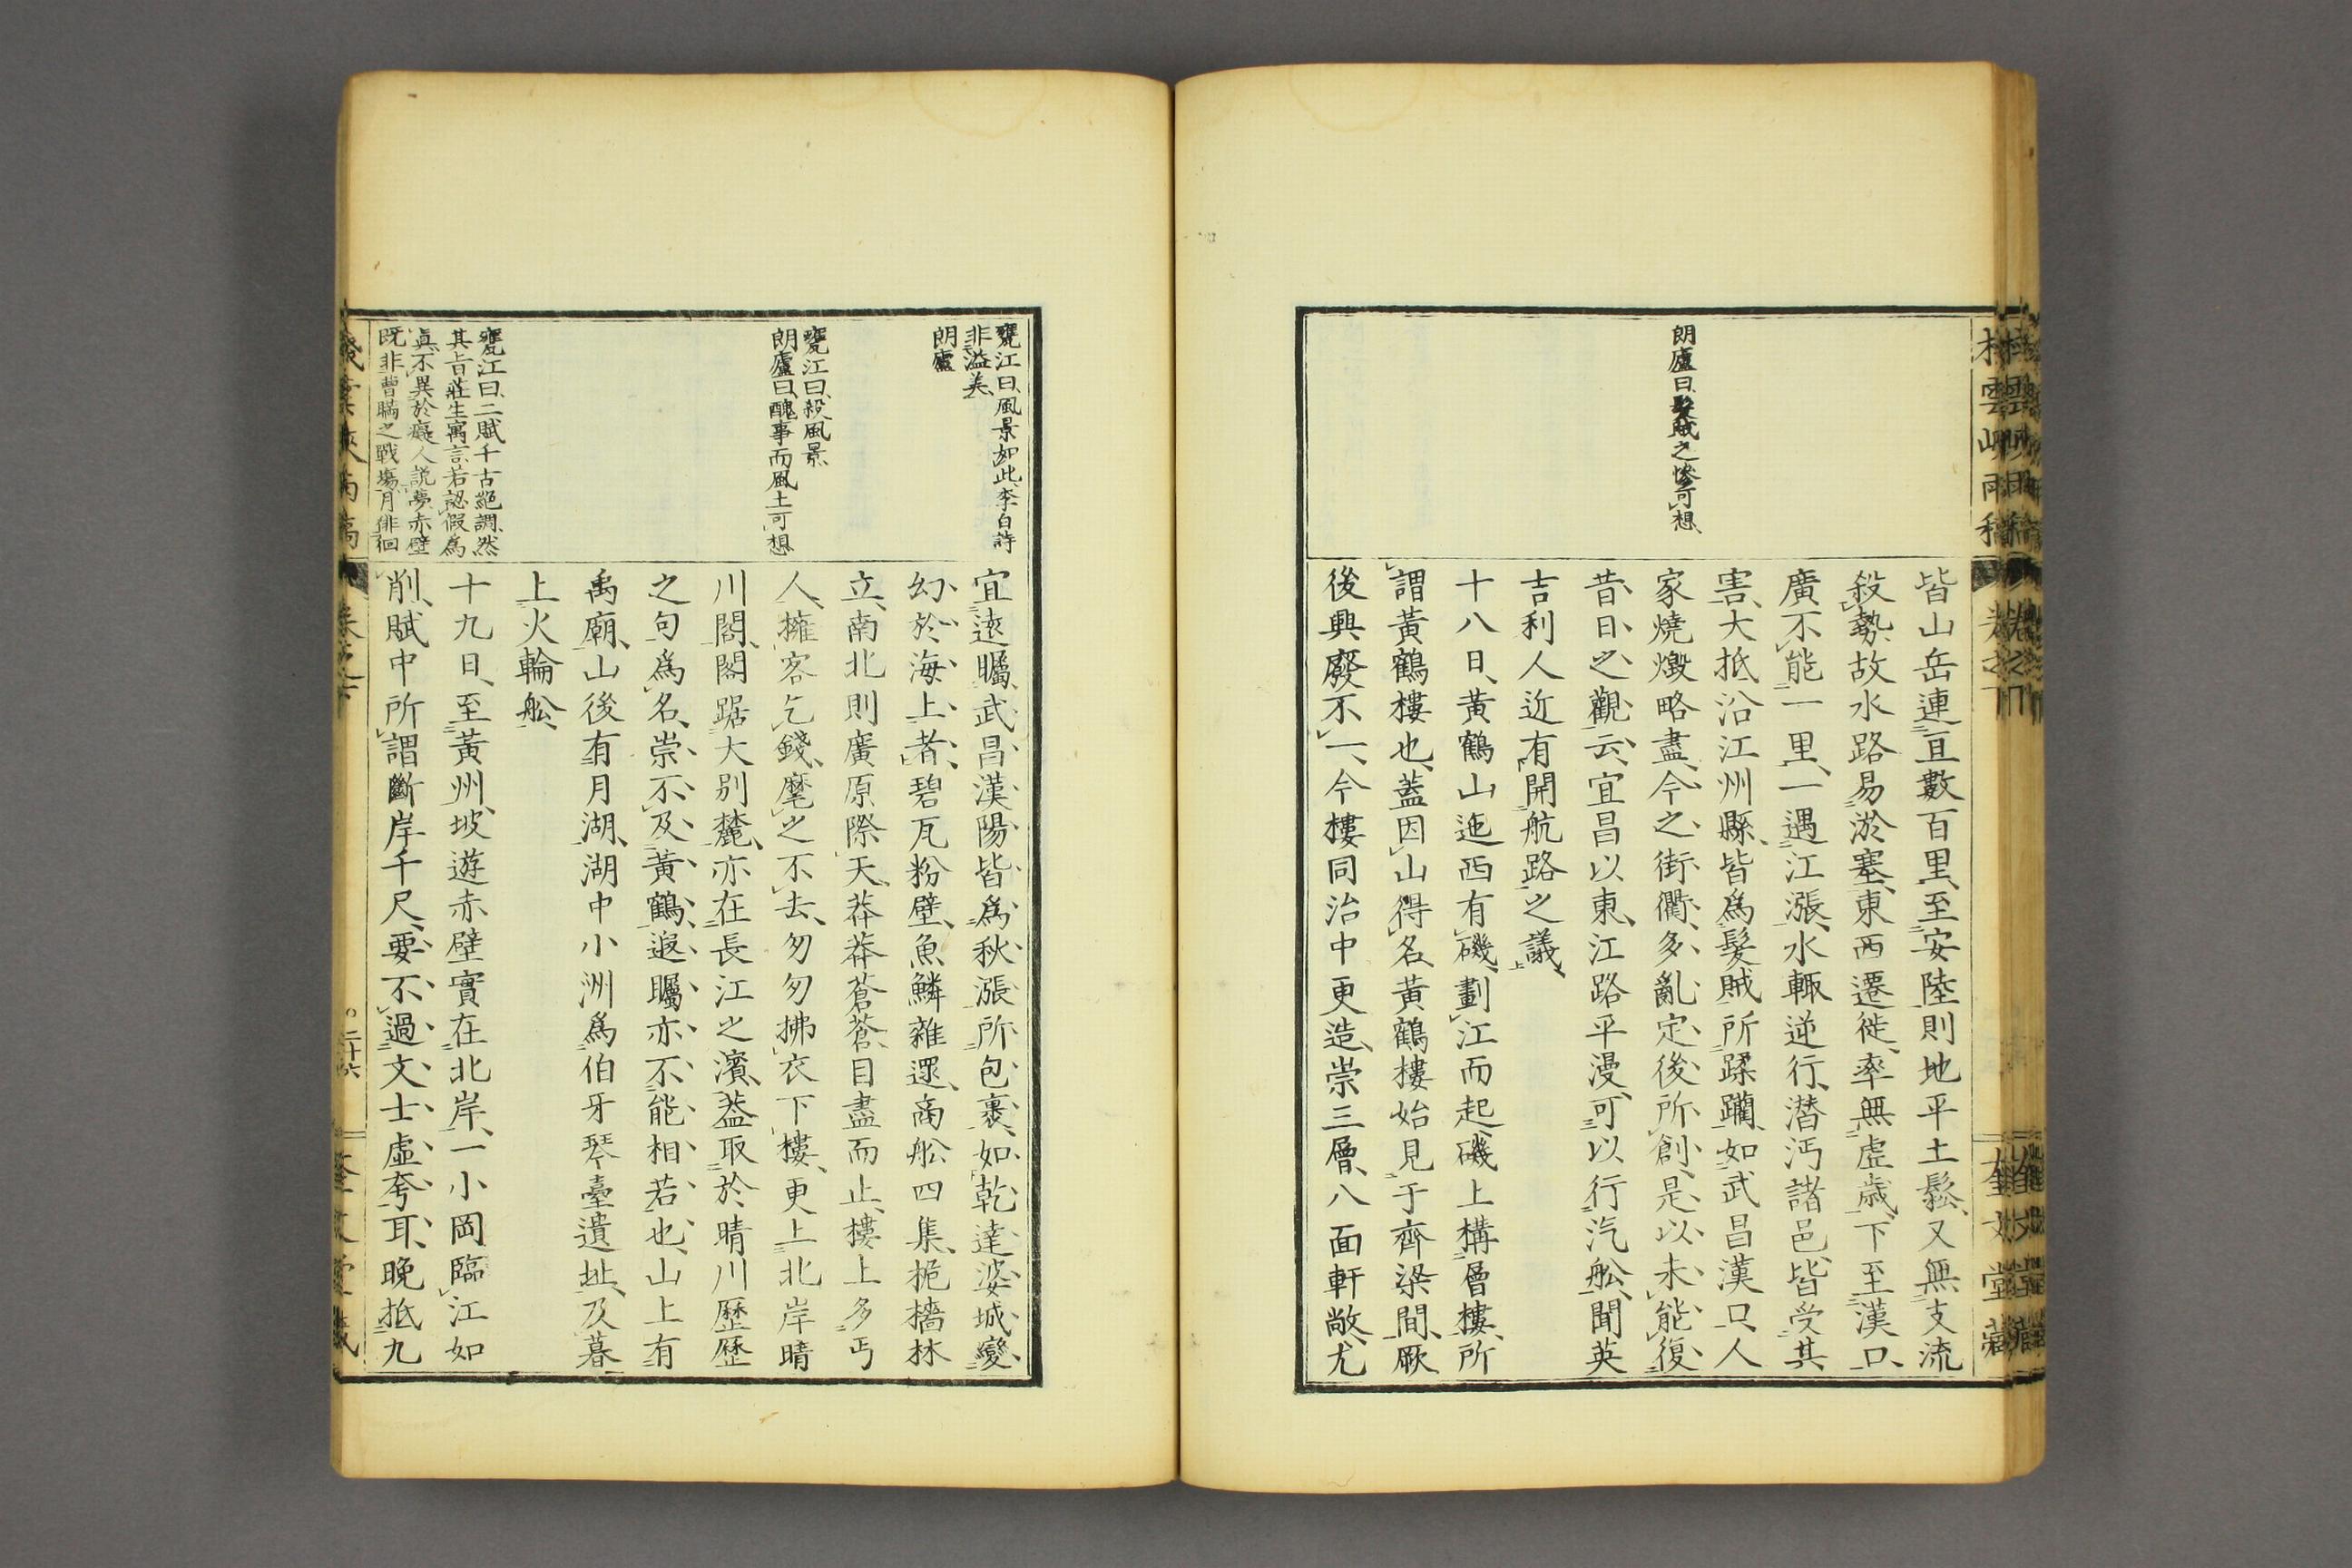 朗廬曰、髮賊之慘可想、
皆山岳連亘數百里、至安陸則地平土鬆、又無支流
殺勢、故水路易淤塞、東西遷徙、率無虛歲、下至漢口、
廣不能一里、一遇江漲、水輒逆行、潛沔諸邑、皆受其
害、大抵沿江州縣、皆爲髮賊所蹂躪、如武昌漢口、人
家燒燬略盡、今之街衢、多亂定後所創、是以未能復
昔日之觀云、宜昌以東、江路平漫、可以行汽舩、聞英
吉利人近有開航路之議、
十八日、黃鶴山迤西有磯、劃江而起、磯上構層樓、所
謂黃鶴樓也、蓋因山得名、黃鶴樓始見于齊梁間、厥
後興廢不一、今樓同治中更造、崇三層、八面軒敞、尤
甕江曰、風景如此、李白詩
非溢美、
朗廬
甕江曰、殺風景
朗廬曰、醜事而風土可想
甕江曰、二賦千古絕調、然
其旨莊生寓言、若認假爲
眞、不異於癡人說夢、赤壁
既非曹瞞之戰塲、月徘徊
宜遠矚、武昌漢陽皆爲秋漲所包裹、如乾達婆城變
幻於海上者、碧瓦粉壁、魚鱗雜遝、商舩四集、桅檣林
立、南北則廣原際天、莽莽蒼蒼、目盡而止、樓上多丐
人、擁客乞錢、麾之不去、匆匆拂衣下樓、更上北岸晴
川閣、閣踞大別麓、亦在長江之濱、蓋取於晴川歷歷
之句爲名、崇不及黃鶴、遐矚亦不能相若也、山上有
禹廟、山後有月湖、湖中小洲爲伯牙琴臺遺址、及暮
上火輪舩、
十九日、至黃州、坡遊赤壁實在北岸、一小岡臨江如
削、賦中所謂斷岸千尺、要不過文士虛夸耳、晚抵九
二十六